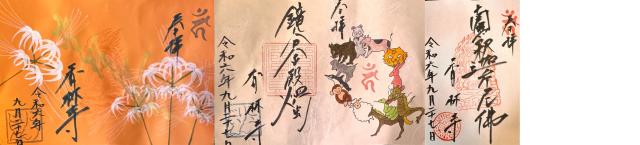 奉拝
香林寺
令和六年
九月二十七日
奉拝
香林寺
令和六年九月二十七日
奉拝
南無釈迦牟尼佛
香林寺
令和六年九月二十七日